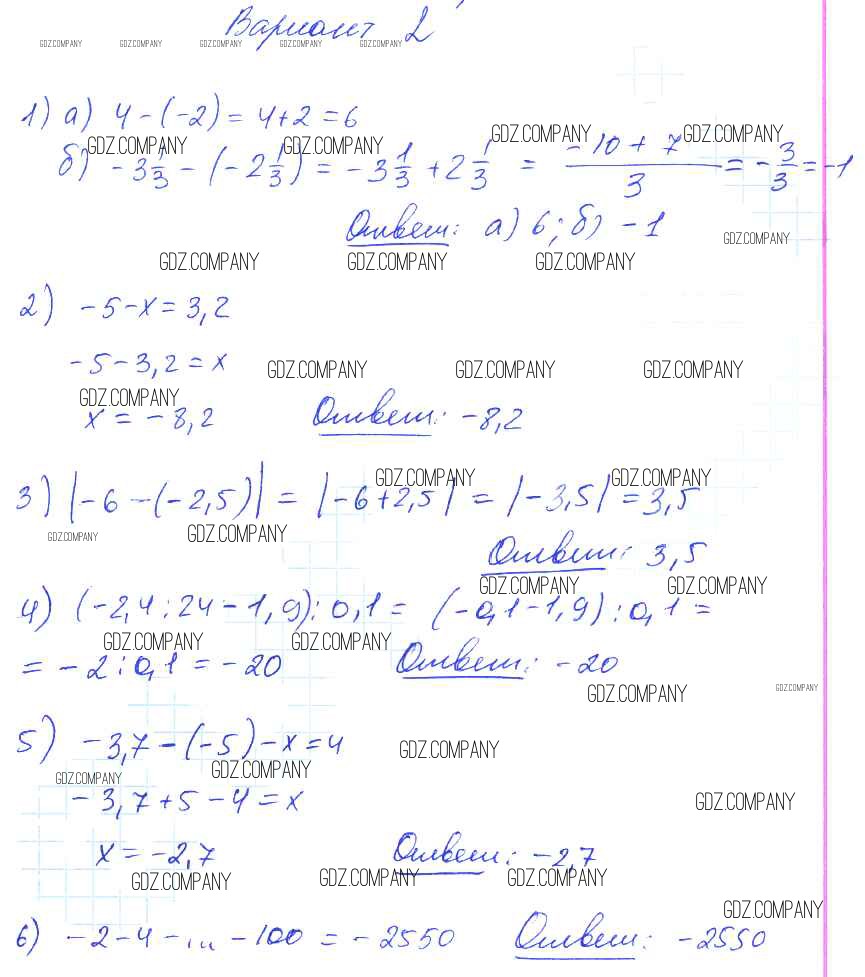 Вариант 2
GDZ.COMPANY GDZ.COMPANY GDZ.COMPANY GDZ.COMPANY GDZ.COMPANY
1) а) 4 - (-2) = 4 + 2 = 6
GDZ.COMPANY GDZ.COMPANY GDZ.COMPANY GDZ.COMPANY
б) -3 1/3 - (-2 1/3) = -3 1/3 + 2 1/3 = (-10 + 7)/3 = -3/3 = -1
Ответ: а) 6; б) -1
GDZ.COMPANY
GDZ.COMPANY GDZ.COMPANY GDZ.COMPANY
2) -5 - x = 3,2
-5 - 3,2 = x
GDZ.COMPANY GDZ.COMPANY GDZ.COMPANY
GDZ.COMPANY
x = -8,2 Ответ: -8,2
GDZ.COMPANY GDZ.COMPANY
3) |-6 - (-2,5)| = |-6 + 2,5| = |-3,5| = 3,5
GDZ.COMPANY GDZ.COMPANY
Ответ: 3,5
GDZ.COMPANY GDZ.COMPANY
4) (-2,4 : 24 - 1,9) : 0,1 = (-0,1 - 1,9) : 0,1 =
GDZ.COMPANY GDZ.COMPANY
= -2 : 0,1 = -20 Ответ: -20
GDZ.COMPANY GDZ.COMPANY
5) -3,7 - (-5) - x = 4
GDZ.COMPANY
GDZ.COMPANY
GDZ.COMPANY
-3,7 + 5 - 4 = x
GDZ.COMPANY
x = -2,7 Ответ: -2,7
GDZ.COMPANY GDZ.COMPANY GDZ.COMPANY
GDZ.COMPANY
6) -2 - 4 - ... - 100 = -2550 Ответ: -2550